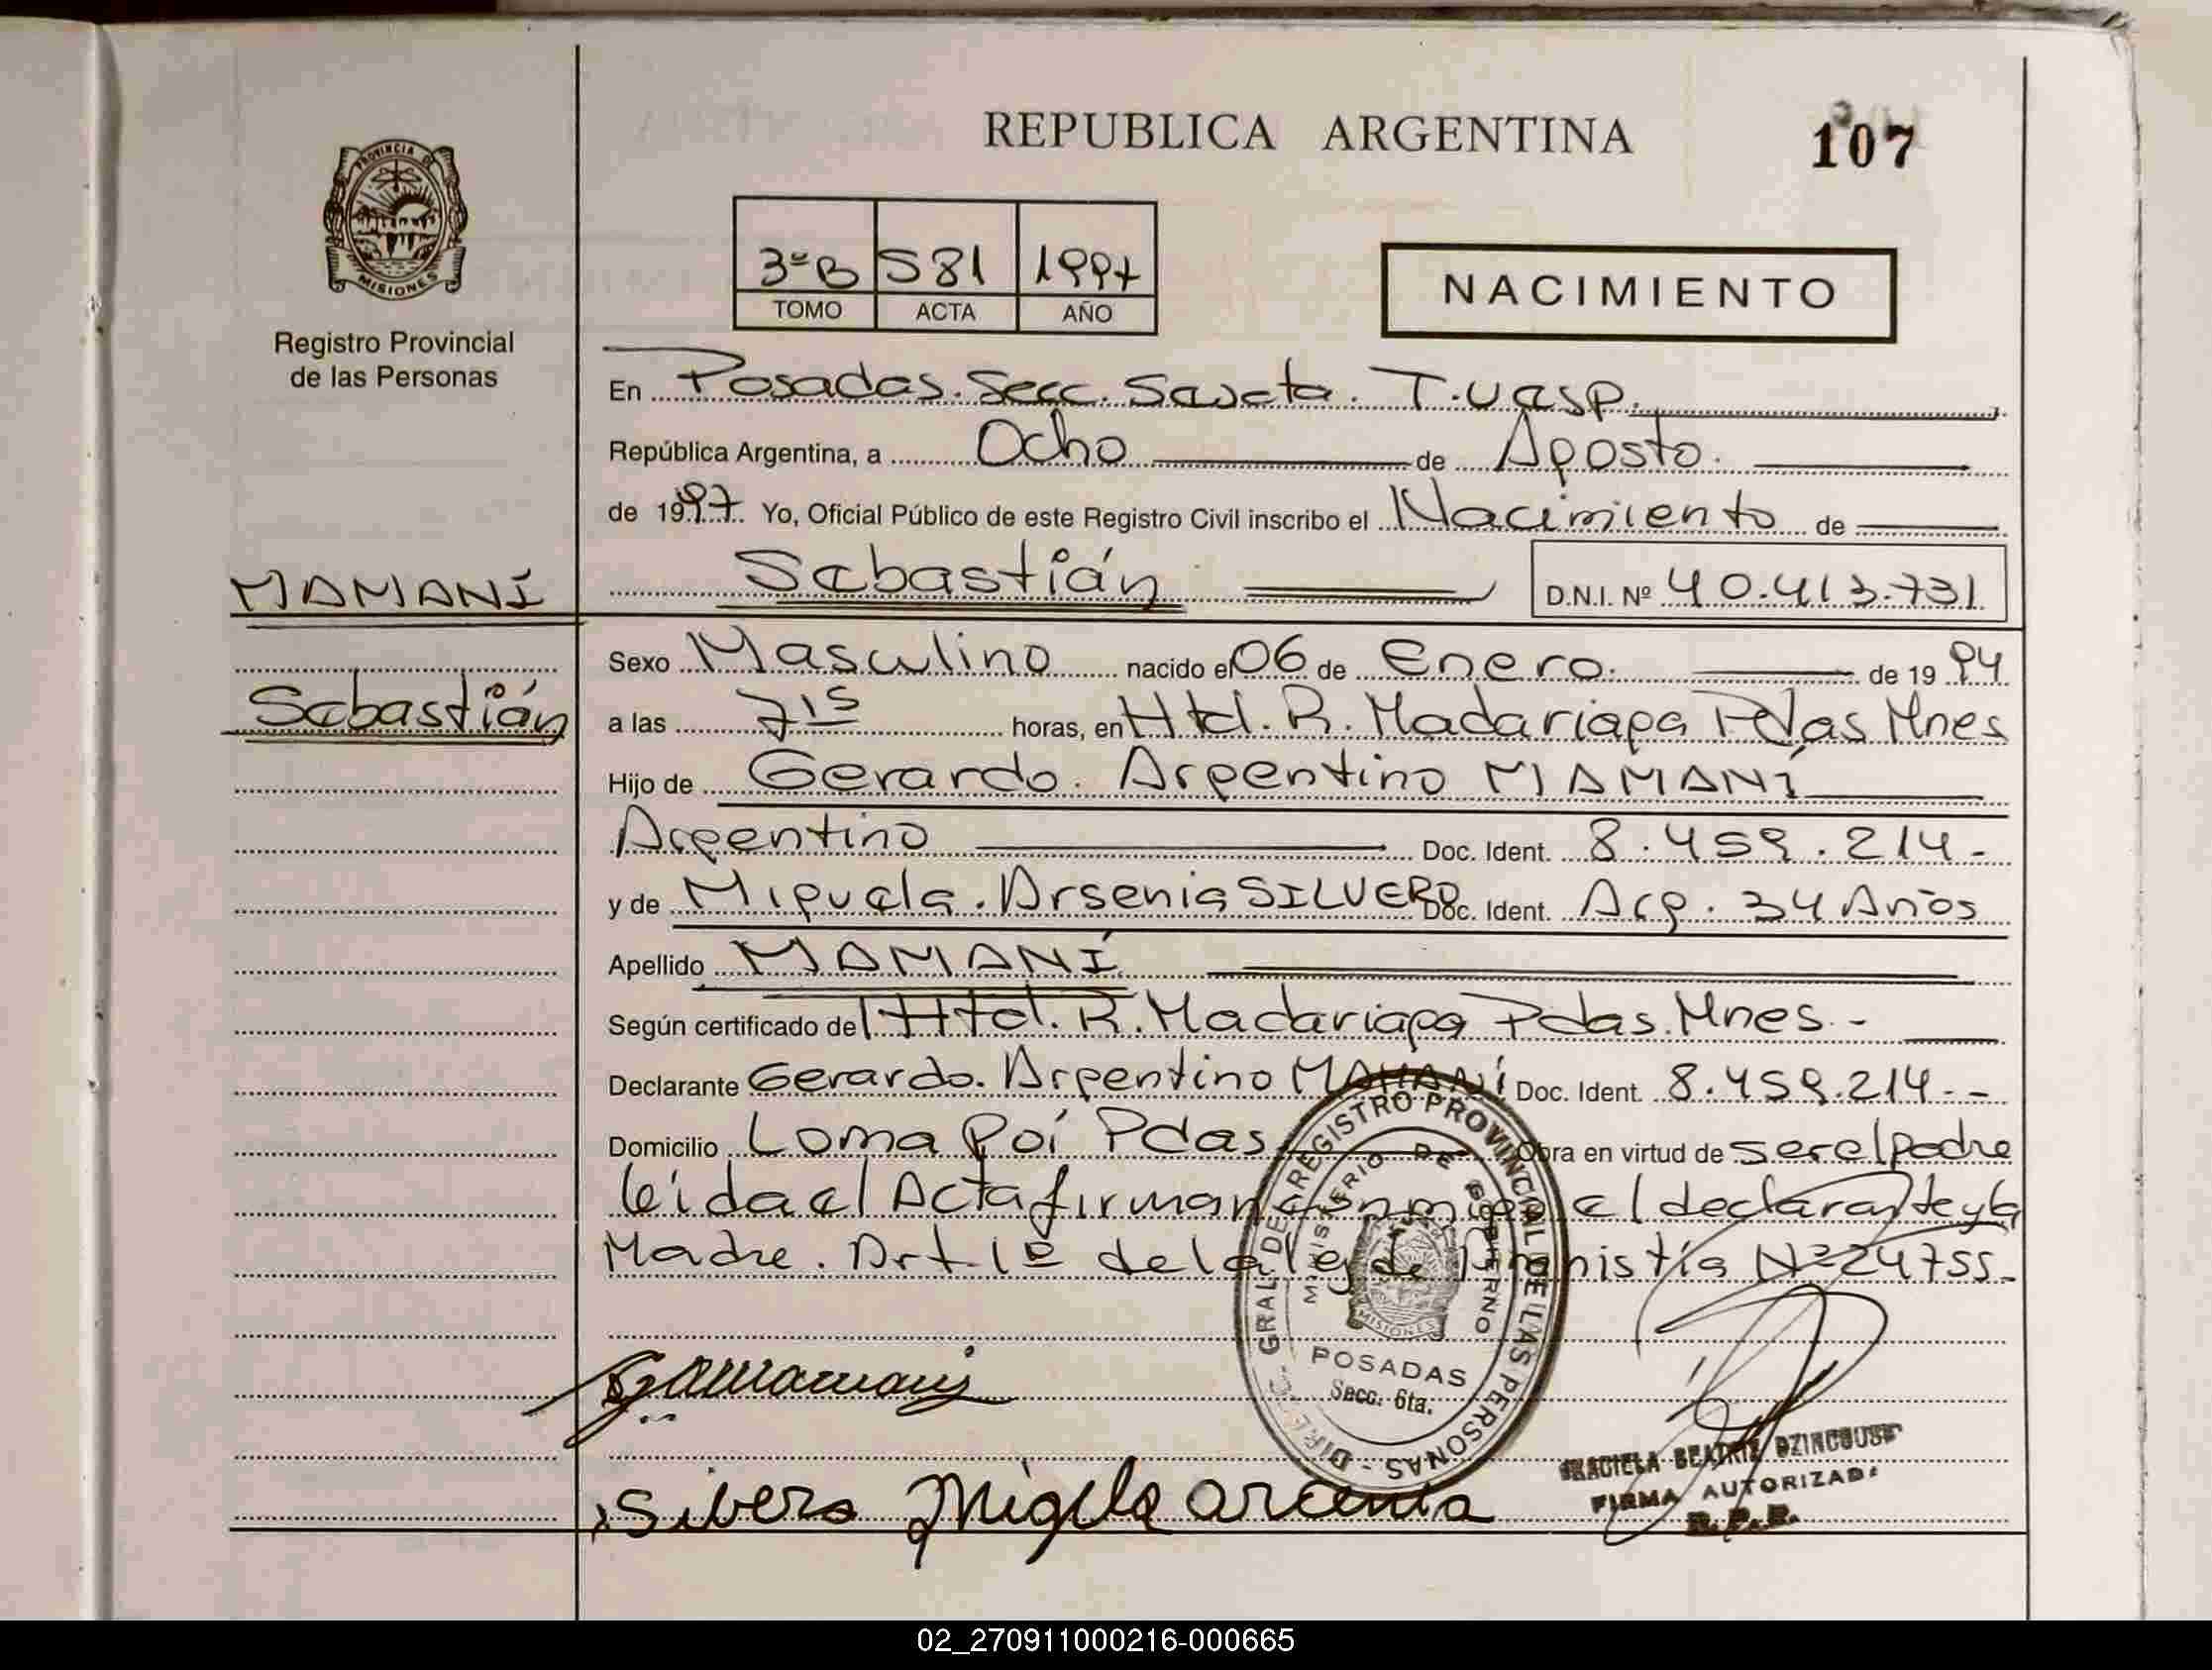 REPUBLICA ARGENTINA
107
PROVINCIA DE
MISIONES
Registro Provincial
de las Personas
3º B 581 1997
TOMO ACTA AÑO
NACIMIENTO
En Posadas. Secc. Sexta. T. vesp.
República Argentina, a Ocho de Agosto.
de 1997. Yo, Oficial Público de este Registro Civil inscribo el Nacimiento de
MAMANÍ
Sebastián
D.N.I. Nº 40.413.731
Sexo Masculino nacido el 06 de Enero. de 19 94
Sebastián
a las 7 15 horas, en Htal. R. Madariaga Pdas Mnes
Hijo de Gerardo. Argentino MAMANÍ
Argentino Doc. Ident. 8.459.214.-
y de Miguela. Arsenia SILVERO Doc. Ident. Arg. 34 Años
Apellido MAMANÍ
Según certificado del Htal. R. Madariaga Pdas. Mnes.-
Declarante Gerardo. Argentino MAMANÍ Doc. Ident. 8.459.214.--
Domicilio Loma Poí Pdas. Obra en virtud de ser el padre
leída el Acta firman conmigo el declarante y la
Madre. Art. 1º de la ley de Amnistía Nº 24755.-
DIREC. GRAL DEL REGISTRO PROVINCIAL DE LAS PERSONAS -
MINISTERIO DE GOBIERNO
MISIONES
POSADAS
Secc. 6ta.
GAMamani
GRACIELA BEATRIZ
FIRMA AUTORIZADA
R. P. P.
Silvero Miguela arcenia
02_270911000216-000665